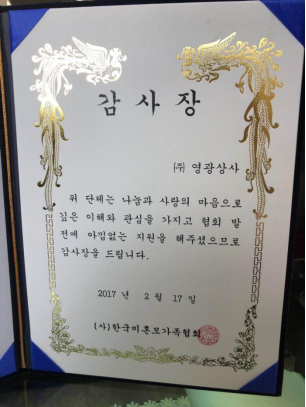 감사장
㈜ 영광상사
위 단체는 나눔과 사랑의 마음으로
깊은 이해와 관심을 가지고 협회 발
전에 아낌없는 지원을 해주셨으므로
감사장을 드립니다.
2017 년 2 월 17 일
(사)한국미혼모가족협회